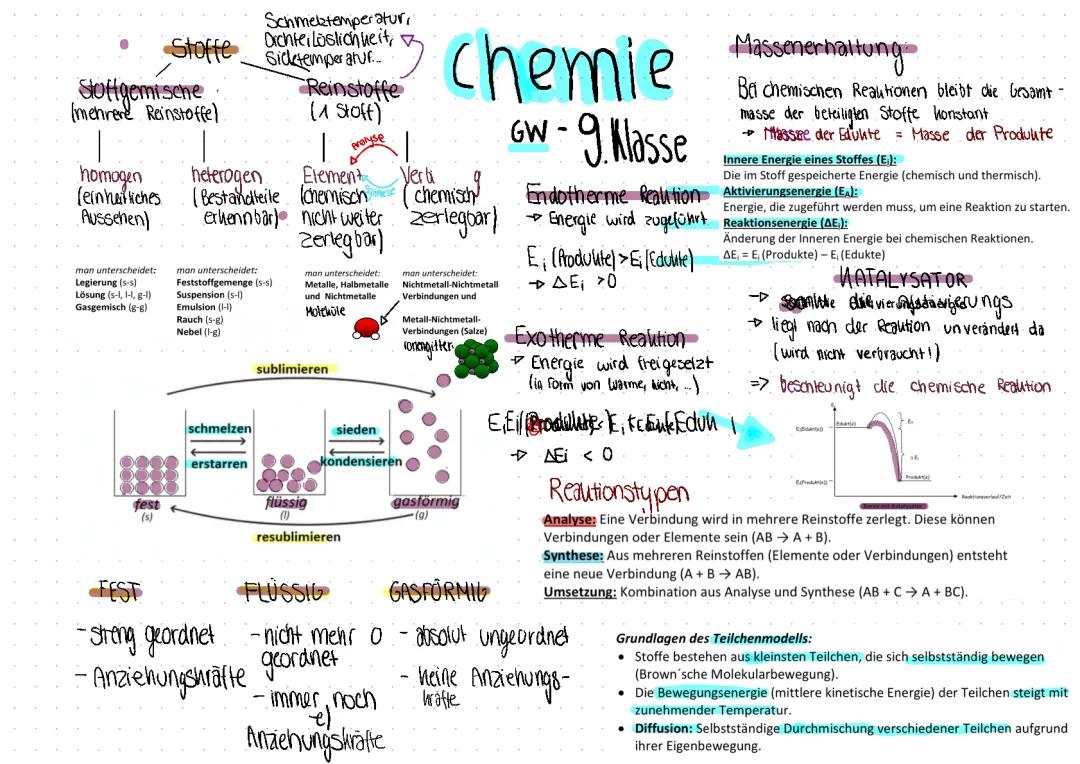 Stoffe
Schmelztemperatur,
Dichte, Löslichkeit,
Siedetemperatur...
Stoffgemische
(mehrere Reinstoffe)
Reinstoffe
(1 Stoff)
Analyse
Synthese
homogen
(einheitliches
Aussehen)
heterogen
(Bestandteile
erkennbar)
Element
(chemisch
nicht weiter
zerlegbar)
Verbi g
(chemisch
zerlegbar)
man unterscheidet:
Legierung (s-s)
Lösung (s-l, l-l, g-l)
Gasgemisch (g-g)
man unterscheidet:
Feststoffgemenge (s-s)
Suspension (s-l)
Emulsion (l-l)
Rauch (s-g)
Nebel (l-g)
man unterscheidet:
Metalle, Halbmetalle
und Nichtmetalle
Moleküle
man unterscheidet:
Nichtmetall-Nichtmetall-
Verbindungen und
Metall-Nichtmetall-
Verbindungen (Salze)
Ionengitter
sublimieren
schmelzen
erstarren
sieden
kondensieren
fest
(s)
flüssig
(l)
gasförmig
(g)
resublimieren
FEST
- streng geordnet
- Anziehungskräfte
FLÜSSIG
- nicht mehr so
geordnet
- immer noch
Anziehungskräfte
GASFÖRMIG
- absolut ungeordnet
- keine Anziehungs-
kräfte
Chemie
GW - 9. Klasse
Endotherme Reaktion
→ Energie wird zugeführt
Ei (Produkte) > Ei (Edukte)
→ ΔEi > 0
Exotherme Reaktion
→ Energie wird freigesetzt
(in Form von Wärme, Licht, ...)
→ ΔEi < 0
Reaktionstypen
Analyse: Eine Verbindung wird in mehrere Reinstoffe zerlegt. Diese können
Verbindungen oder Elemente sein (AB → A + B).
Synthese: Aus mehreren Reinstoffen (Elemente oder Verbindungen) entsteht
eine neue Verbindung (A + B → AB).
Umsetzung: Kombination aus Analyse und Synthese (AB + C → A + BC).
Massenerhaltung
Bei chemischen Reaktionen bleibt die Gesamt-
masse der beteiligten Stoffe konstant
→ Masse der Edukte = Masse der Produkte
Innere Energie eines Stoffes (Ei):
Die im Stoff gespeicherte Energie (chemisch und thermisch).
Aktivierungsenergie (EA):
Energie, die zugeführt werden muss, um eine Reaktion zu starten.
Reaktionsenergie (ΔEi):
Änderung der Inneren Energie bei chemischen Reaktionen.
ΔEi = Ei (Produkte) – Ei (Edukte)
KATALYSATOR
→ liegt nach der Reaktion unverändert da
(wird nicht verbraucht!)
=> beschleunigt die chemische Reaktion
Ei
Ei(Edukt(e))
Edukt(e)
EA
Δ Ei
Ei(Produkt(e))
Produkt(e)
Reaktionsverlauf/Zeit
Grundlagen des Teilchenmodells:
• Stoffe bestehen aus kleinsten Teilchen, die sich selbstständig bewegen
(Brown´sche Molekularbewegung).
• Die Bewegungsenergie (mittlere kinetische Energie) der Teilchen steigt mit
zunehmender Temperatur.
• Diffusion: Selbstständige Durchmischung verschiedener Teilchen aufgrund
ihrer Eigenbewegung.